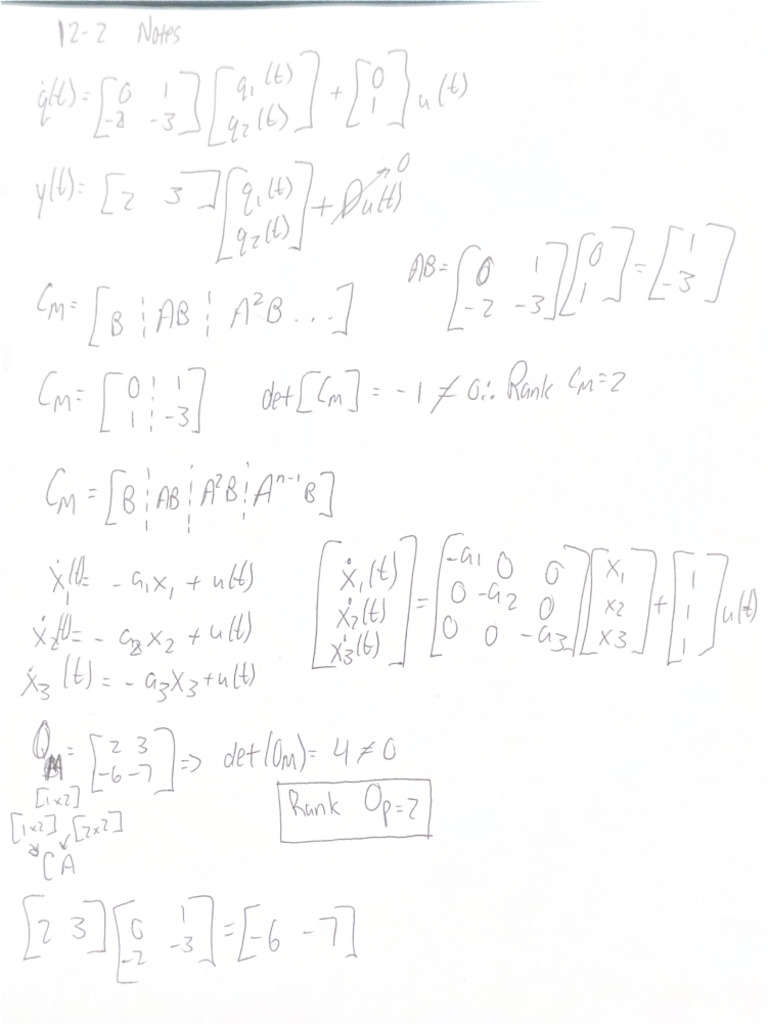 12-2 Notes
q̇(t) = [0 1; -2 -3] [q₁(t); q₂(t)] + [0; 1] u(t)
y(t) = [2 3] [q₁(t); q₂(t)] + Du(t) → 0
AB = [0 1; -2 -3] [0; 1] = [1; -3]
C_M = [B ¦ AB ¦ A²B ...]
C_M = [0 ¦ 1; 1 ¦ -3] det[C_M] = -1 ≠ 0 ∴ Rank C_M = 2
C_M = [B ¦ AB ¦ A²B ¦ Aⁿ⁻¹B]
ẋ₁(t) = -a₁x₁ + u(t)
ẋ₂(t) = -a₂x₂ + u(t)
ẋ₃(t) = -a₃x₃ + u(t)
[ẋ₁(t); ẋ₂(t); ẋ₃(t)] = [-a₁ 0 0; 0 -a₂ 0; 0 0 -a₃] [x₁; x₂; x₃] + [1; 1; 1] u(t)
O_M = [2 3; -6 -7] => det(O_M) = 4 ≠ 0
[1x2]
Rank O_P = 2
[1x2] [2x2]
CA
[2 3] [0 1; -2 -3] = [-6 -7]